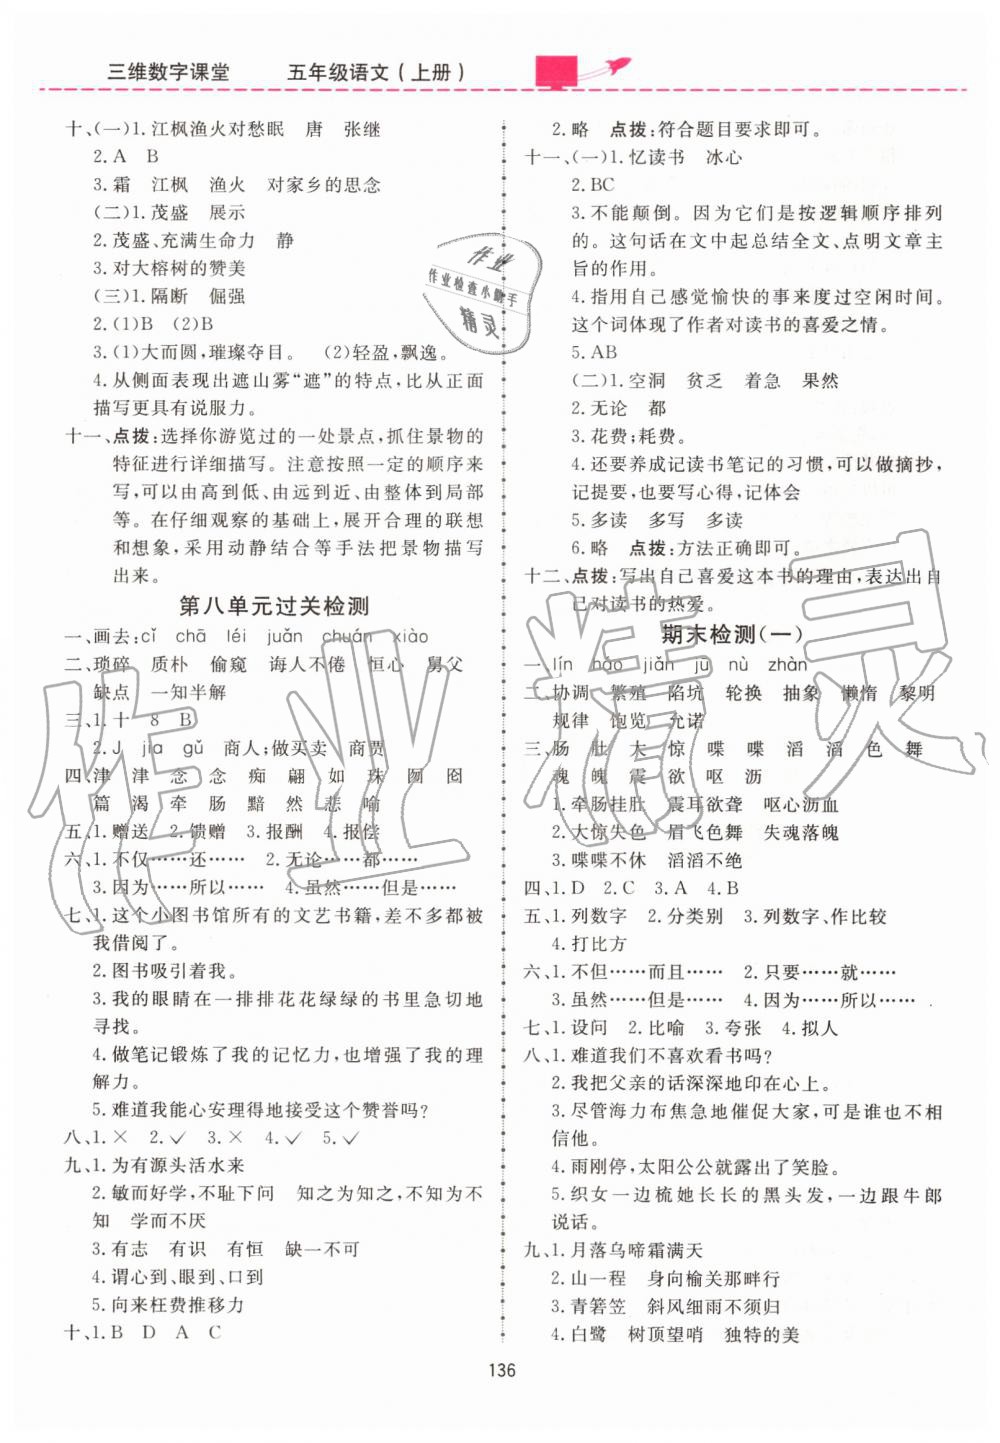 三维数字课堂 五年级语文(上册)
十、(一)1.江枫渔火对愁眠 唐 张继
2.A B
3.霜 江枫 渔火 对家乡的思念
(二)1.茂盛 展示
2.茂盛、充满生命力 静
3.对大榕树的赞美
(三)1.隔断 倔强
2.(1)B (2)B
3.(1)大而圆,璀璨夺目。 (2)轻盈,飘逸。
4.从侧面表现出遮山雾“遮”的特点,比从正面
描写更具有说服力。
十一、点拨:选择你游览过的一处景点,抓住景物的
特征进行详细描写。注意按照一定的顺序来
写,可以由高到低、由远到近、由整体到局部
等。在仔细观察的基础上,展开合理的联想
和想象,采用动静结合等手法把景物描写
出来。
第八单元过关检测
一、画去:cǐ chā léi juǎn chuán xiào
二、琐碎 质朴 偷窥 诲人不倦 恒心 舅父
缺点 一知半解
三、1.十 8 B
2.J jia gǔ 商人;做买卖 商贾
四、津 津 念 念 痴 翩 如 珠 囫 囵
篇 渴 牵 肠 黯 然 悲 喻
五、1.赠送 2.馈赠 3.报酬 4.报偿
六、1.不仅……还…… 2.无论……都……
3.因为……所以…… 4.虽然……但是……
七、1.这个小图书馆所有的文艺书籍,差不多都被
我借阅了。
2.图书吸引着我。
3.我的眼睛在一排排花花绿绿的书里急切地
寻找。
4.做笔记锻炼了我的记忆力,也增强了我的理
解力。
5.难道我能心安理得地接受这个赞誉吗?
八、1.× 2.✓ 3.× 4.✓ 5.✓
九、1.为有源头活水来
2.敏而好学,不耻下问 知之为知之,不知为不
知 学而不厌
3.有志 有识 有恒 缺一不可
4.谓心到、眼到、口到
5.向来枉费推移力
十、1.B D A C
2.略 点拨:符合题目要求即可。
十一、(一)1.忆读书 冰心
2.BC
3.不能颠倒。因为它们是按逻辑顺序排列
的。这句话在文中起总结全文、点明文章主
旨的作用。
4.指用自己感觉愉快的事来度过空闲时间。
这个词体现了作者对读书的喜爱之情。
5.AB
(二)1.空洞 贫乏 着急 果然
2.无论 都
3.花费;耗费。
4.还要养成记读书笔记的习惯,可以做摘抄,
记提要,也要写心得,记体会
5.多读 多写 多读
6.略 点拨:方法正确即可。
十二、点拨:写出自己喜爱这本书的理由,表达出自
己对读书的热爱。
期末检测(一)
一、lín nao jiǎn jū nù zhàn
二、协调 繁殖 陷坑 轮换 抽象 懒惰 黎明
规律 饱览 允诺
三、肠 肚 大 惊 喋 喋 滔 滔 色 舞
魂 魄 震 欲 呕 沥
1.牵肠挂肚 震耳欲聋 呕心沥血
2.大惊失色 眉飞色舞 失魂落魄
3.喋喋不休 滔滔不绝
四、1.D 2.C 3.A 4.B
五、1.列数字 2.分类别 3.列数字、作比较
4.打比方
六、1.不但……而且…… 2.只要……就……
3.虽然……但是…… 4.因为……所以……
七、1.设问 2.比喻 3.夸张 4.拟人
八、1.难道我们不喜欢看书吗?
2.我把父亲的话深深地印在心上。
3.尽管海力布焦急地催促大家,可是谁也不相
信他。
4.雨刚停,太阳公公就露出了笑脸。
5.织女一边梳她长长的黑头发,一边跟牛郎
说话。
九、1.月落乌啼霜满天
2.山一程 身向榆关那畔行
3.青箬笠 斜风细雨不须归
4.白鹭 树顶望哨 独特的美
136
作业
作业检查小助手
精灵
作业精灵